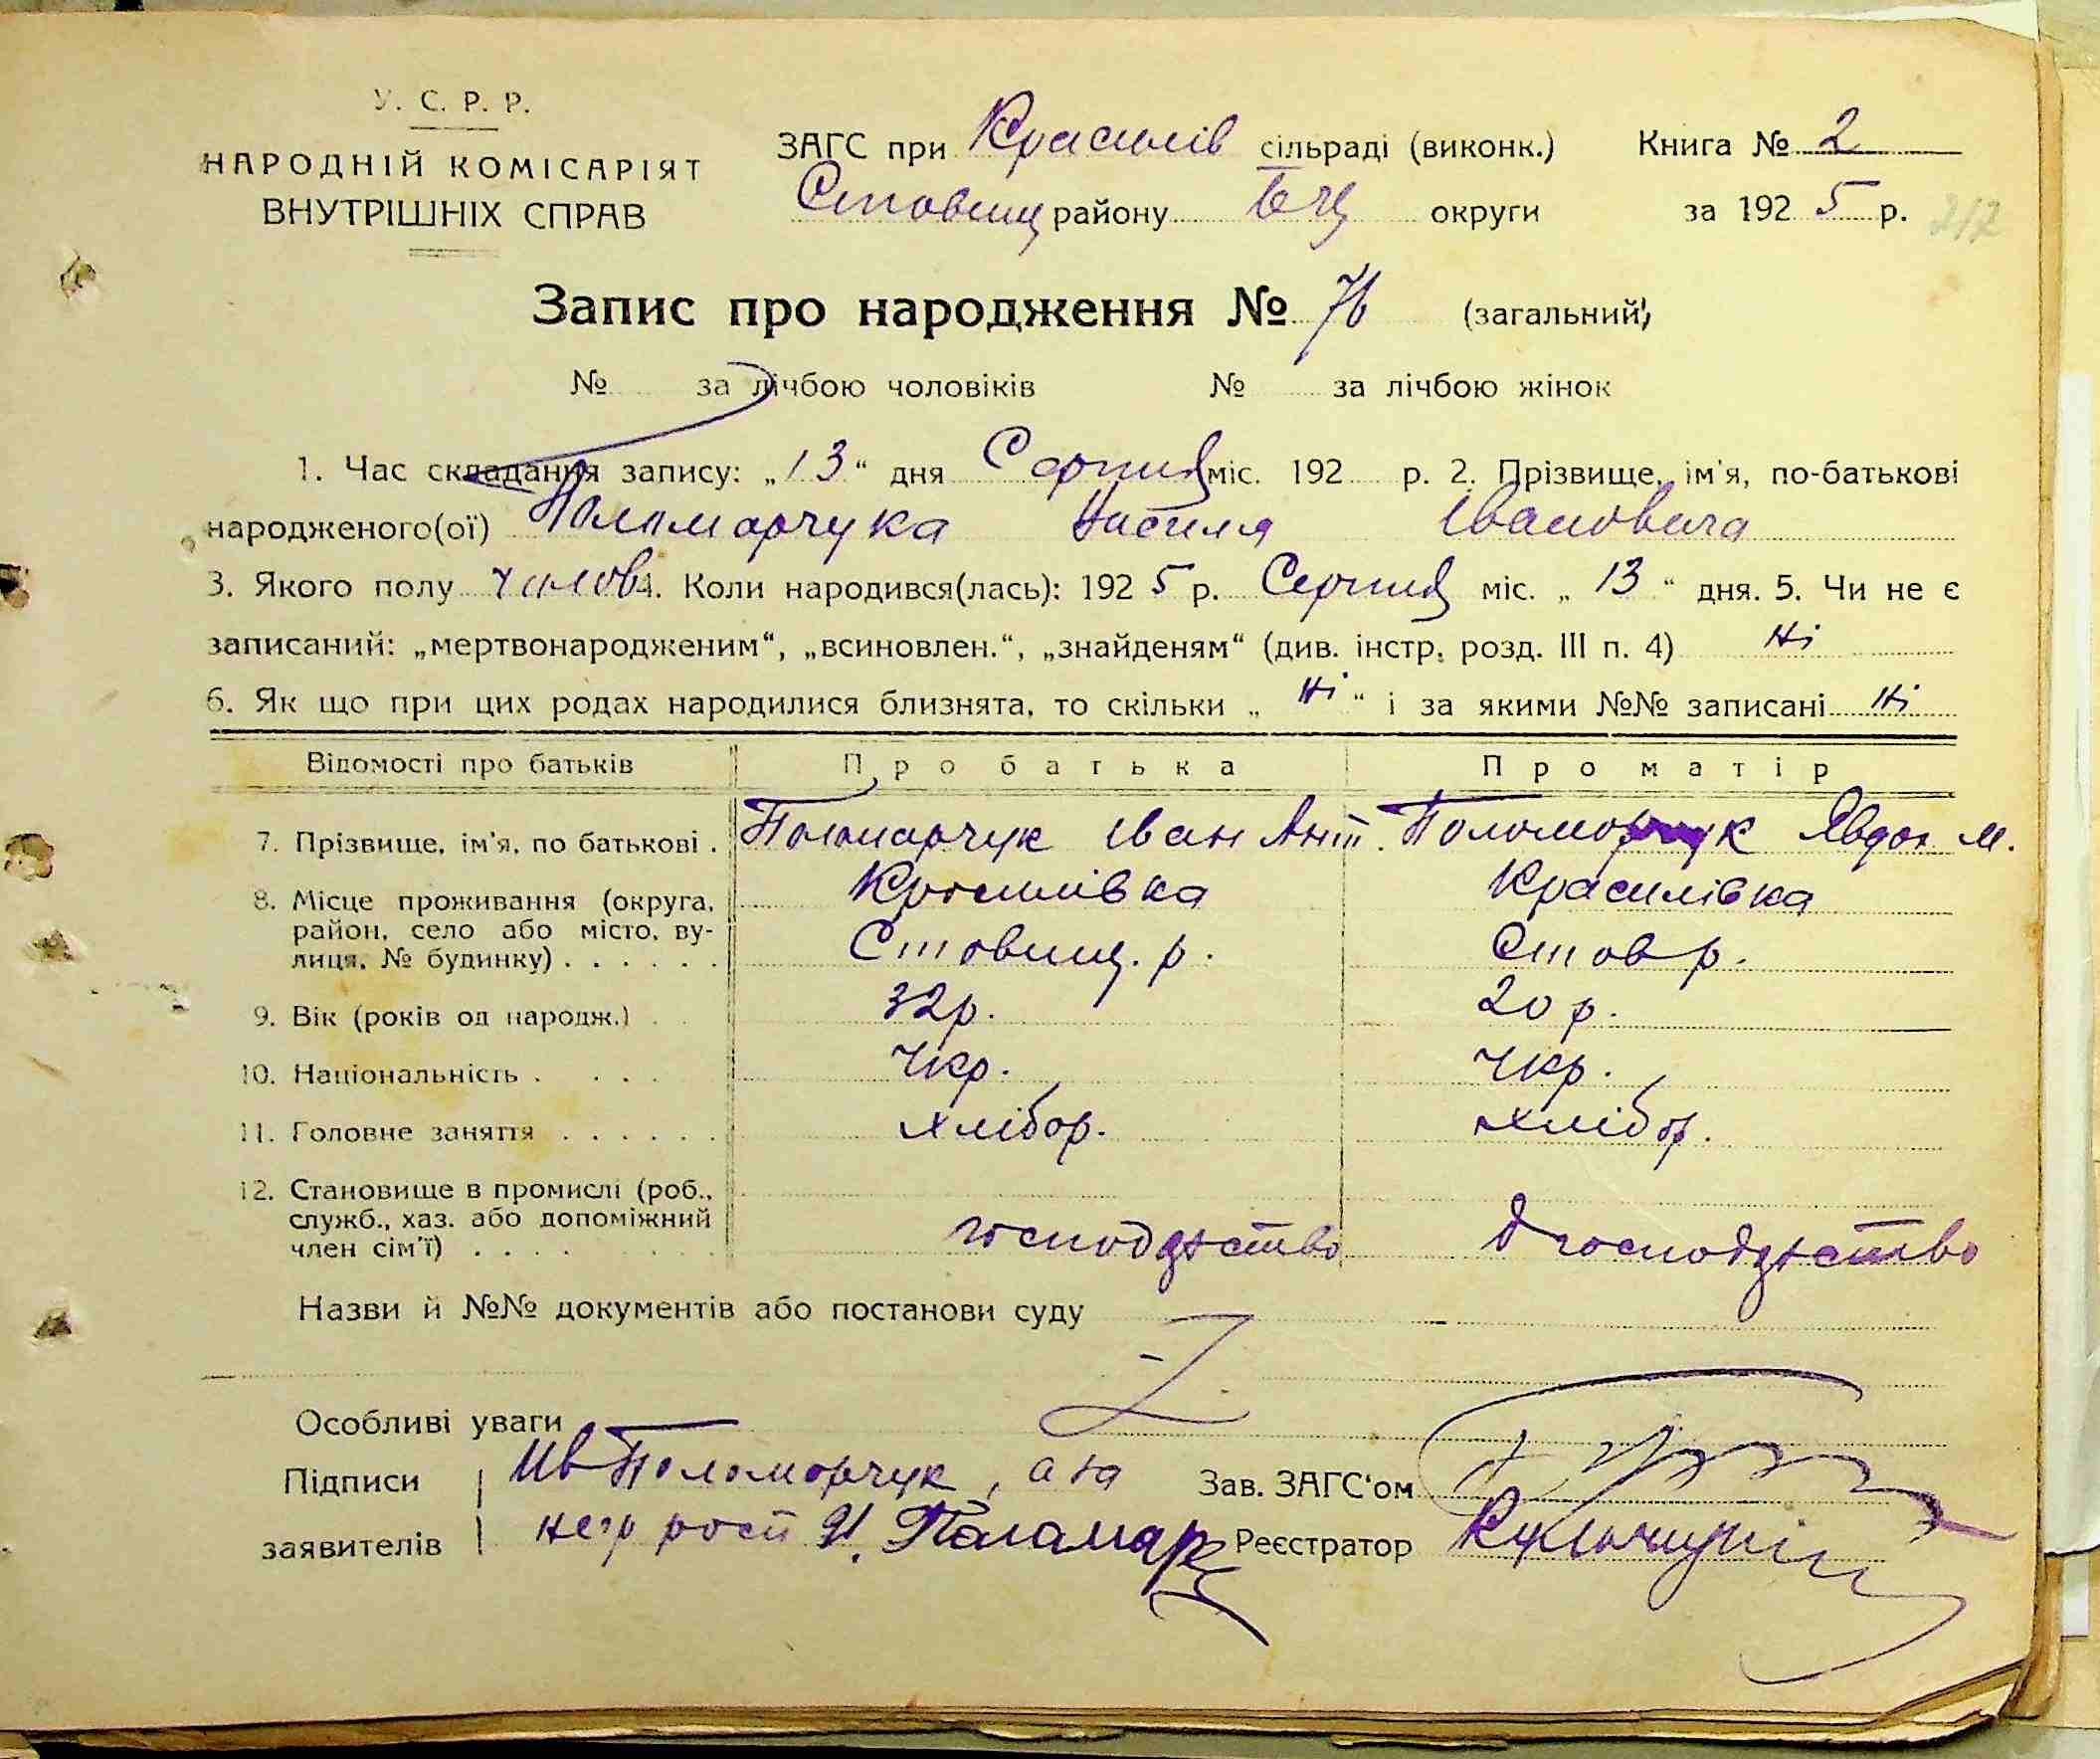 У. С. Р. Р.
НАРОДНІЙ КОМІСАРІЯТ
ВНУТРІШНІХ СПРАВ
ЗАГС при Красилів сільраді (виконк.) Книга № 2
Ставищ району БЦ округи за 192 5 р.
Запис про народження № 76 (загальний)
№ за лічбою чоловіків № за лічбою жінок
1. Час складання запису: „ 13 “ дня Серпня міс. 192 р. 2. Прізвище, ім'я, по-батькові
народженого(ої) Паламарчука Василя Івановича
3. Якого полу чолов 4. Коли народився(лась): 192 5 р. Серпня міс. „ 13 “ дня. 5. Чи не є
записаний: „мертвонародженим“, „всиновлен.“, „знайденям“ (див. інстр. розд. III п. 4) Ні
6. Як що при цих родах народилися близнята, то скільки „ Ні “ і за якими №№ записані Ні
Відомості про батьків Про батька Про матір
7. Прізвище, ім'я, по батькові . Поломарчук Іван Ант. Поломорчук Явдох М.
8. Місце проживання (округа, Красилівка Красилівка
район, село або місто, ву- Ставищ. р. Став р.
лиця, № будинку) . . . . . .
9. Вік (років од народж.) . . 32 р. 20 р.
10. Національність . . . . Укр. Укр.
11. Головне заняття . . . . . . хлібор. хлібор.
12. Становище в промислі (роб.,
служб., хаз. або допоміжний господарство д господарство
член сім'ї) . . . .
Назви й №№ документів або постанови суду
Особливі уваги
Підписи Ив Поломорчук, а за Зав. ЗАГС'ом
заявителів негр рости Паламар Реєстратор